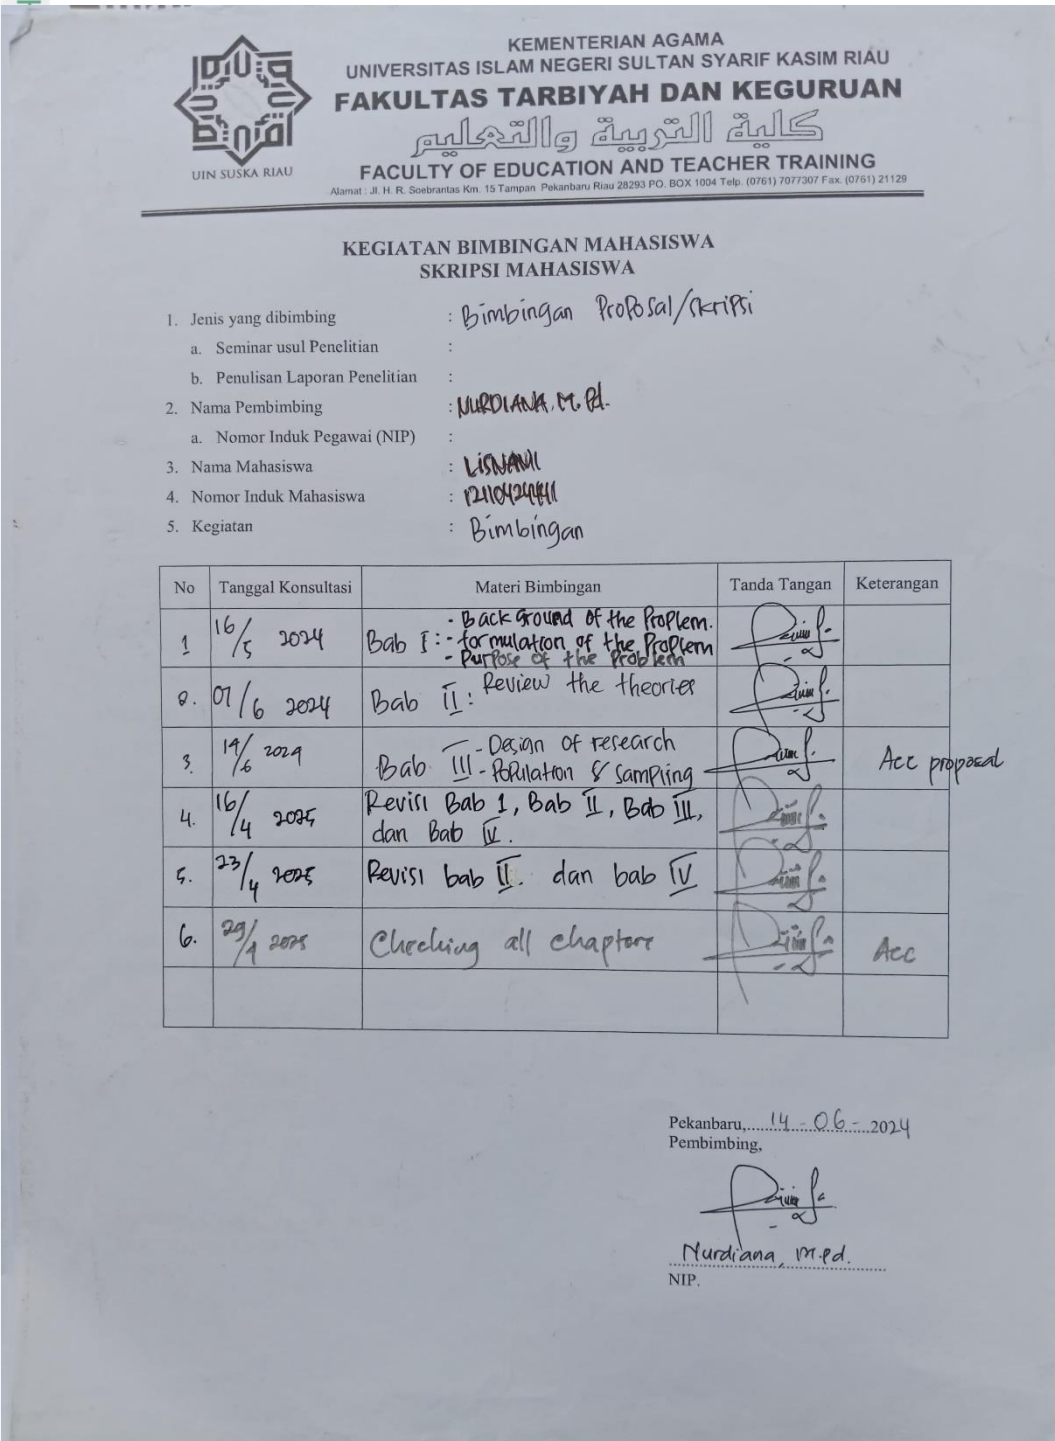 KEMENTERIAN AGAMA
UNIVERSITAS ISLAM NEGERI SULTAN SYARIF KASIM RIAU
FAKULTAS TARBIYAH DAN KEGURUAN
كلية التربية والتعليم
FACULTY OF EDUCATION AND TEACHER TRAINING
Alamat : Jl. H. R. Soebrantas Km. 15 Tampan Pekanbaru Riau 28293 PO. BOX 1004 Telp. (0761) 7077307 Fax. (0761) 21129
UIN SUSKA RIAU
KEGIATAN BIMBINGAN MAHASISWA
SKRIPSI MAHASISWA
1. Jenis yang dibimbing : Bimbingan Proposal/skripsi
a. Seminar usul Penelitian :
b. Penulisan Laporan Penelitian :
2. Nama Pembimbing : NURDIANA, M.Pd.
a. Nomor Induk Pegawai (NIP) :
3. Nama Mahasiswa :
4. Nomor Induk Mahasiswa :
5. Kegiatan : Bimbingan
No Tanggal Konsultasi Materi Bimbingan Tanda Tangan Keterangan
1 16/5 2024 Bab I : - Back Ground of the Problem.
- formulation of the Problem
- Purpose of the Problem
2. 07/6 2024 Bab II : Review the theories
3. 14/6 2024 Bab III - Design of research
- Population & Sampling Acc proposal
4. 16/4 2025 Revisi Bab 1, Bab II, Bab III,
dan Bab IV.
5. 23/4 2025 Revisi bab II. dan bab IV
6. 29/4 2025 Checking all chapters Acc
Pekanbaru, 14-06-2024
Pembimbing,
Nurdiana, M.Pd.
NIP.